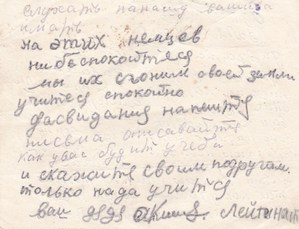 служать
и мать
на этих немцев
небеспокойтеся
мы их сгоним своей земли
учитеся спокойно
дасвидания напишите
письма описавайте
как у вас будит учеба
и скажите своим подругам
только нада учится
ваш дядя Лейтинант